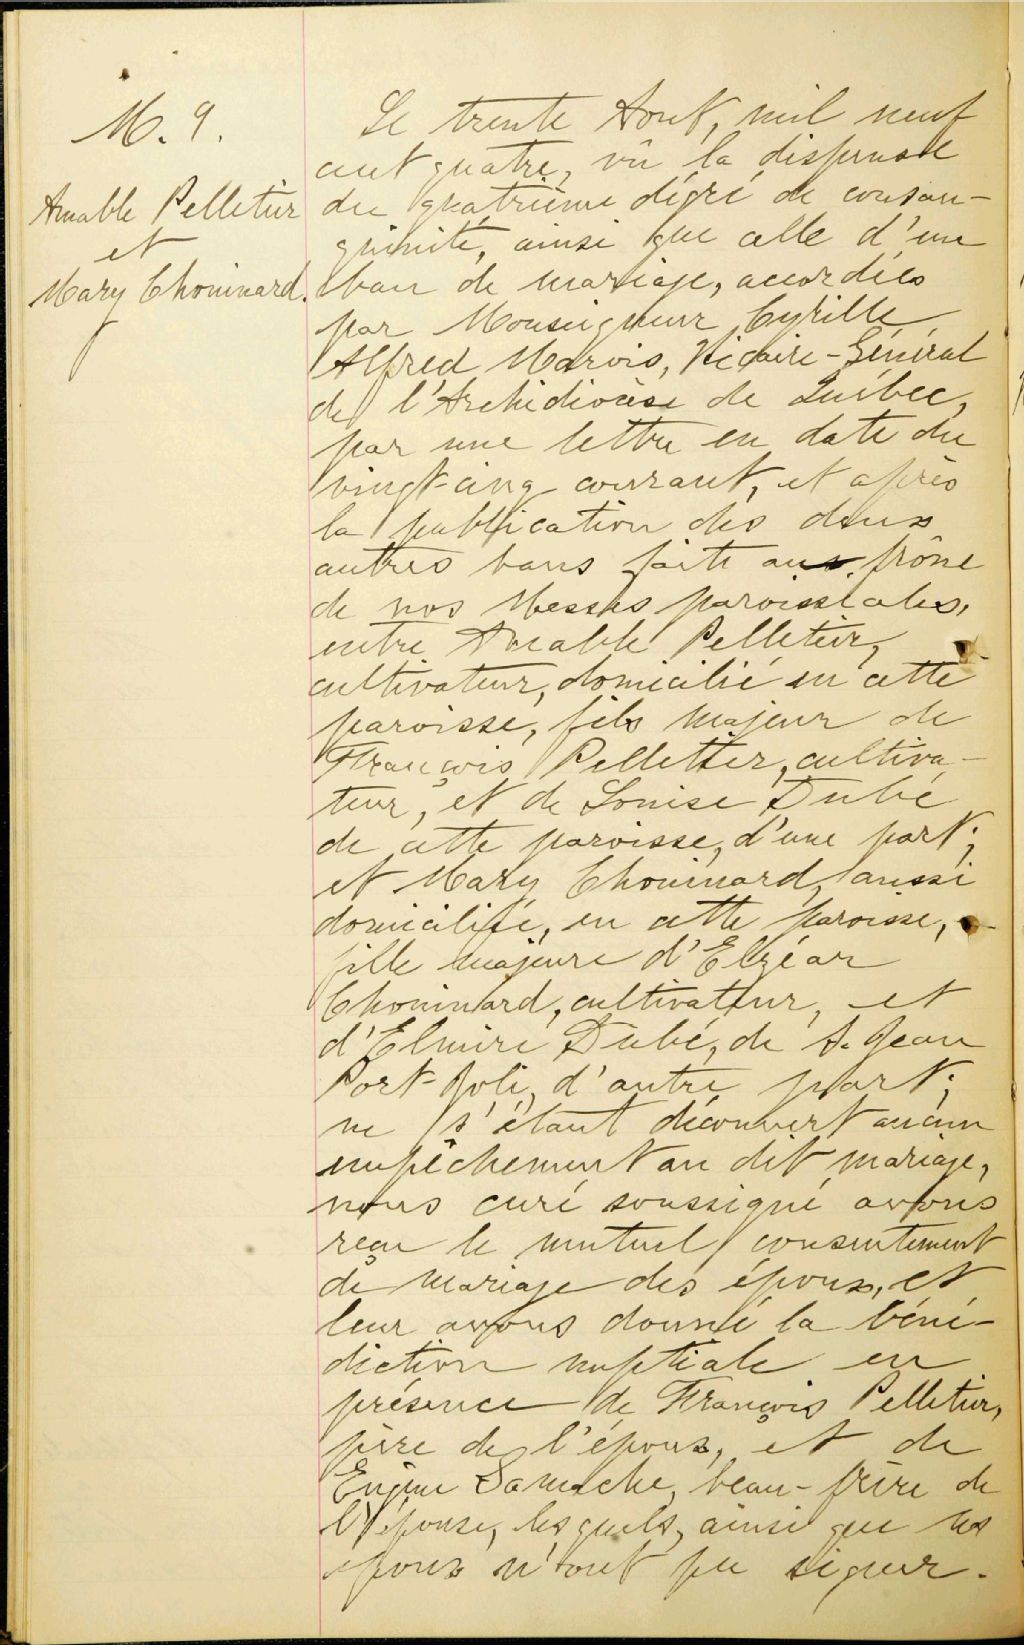 M. 9.
Amable Pelletier
et
Mary Chouinard.
Le trente Août, mil neuf
cent quatre, vû la dispense
du quatrième dégré de consan-
guinité, ainsi que celle d'un
ban de mariage, accordées
par Monseigneur Cyrille
Alfred Marois, Vicaire-Général
de l'Archidiocèse de Québec,
par une lettre en date du
vingt-cinq courant, et après
la publication des deux
autres bans faite aux prône
de nos Messes paroissiales,
entre Amable Pelletier,
cultivateur, domicilié en cette
paroisse, fils majeur de
François Pelletier, cultiva-
teur, et de Louise Dubé
de cette paroisse, d'une part;
et Mary Chouinard, aussi
domiciliée, en cette paroisse,
fille majeure d'Elzéar
Chouinard, cultivateur, et
d'Elmire Dubé, de S. Jean
Port-Joli, d'autre part;
ne s'étant découvert aucun
empêchement au dit mariage,
nous curé soussigné avons
reçu le mutuel consentement
de mariage des époux, et
leur avons donné la béné-
diction nuptiale en
présence de François Pelletier,
père de l'époux, et de
Eugène Gamache, beau-frère de
l'épouse, lesquels, ainsi que les
époux n'ont pu signer.